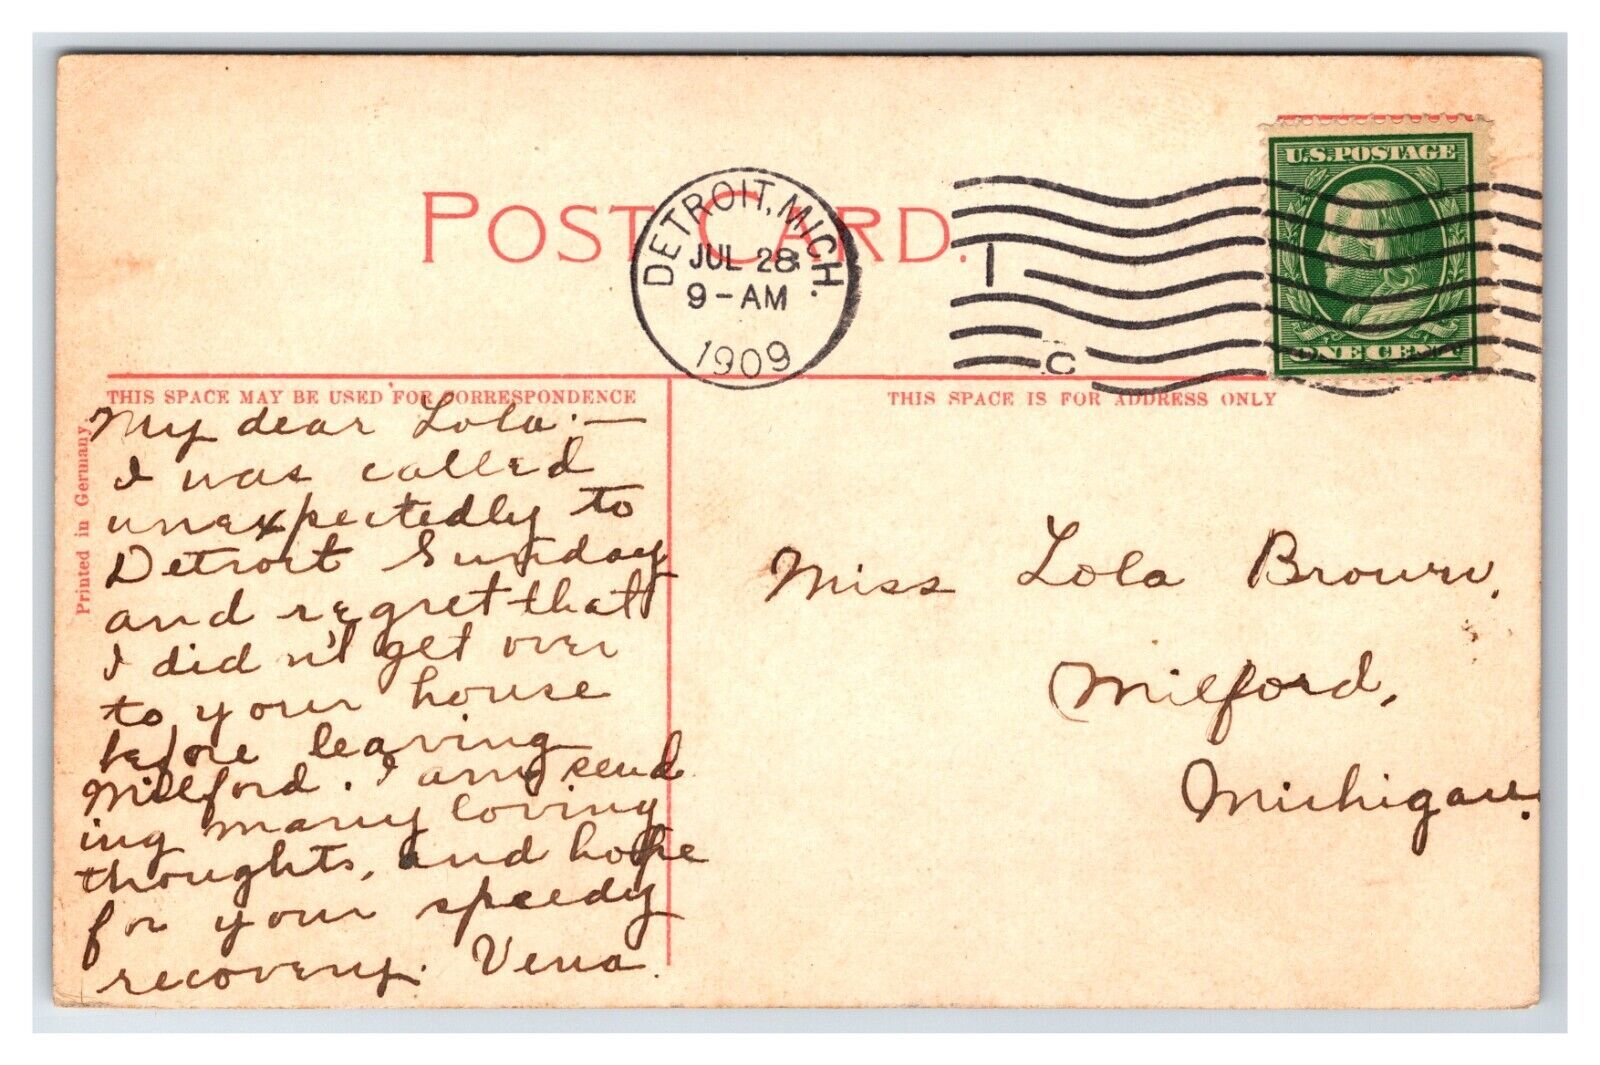 POST CARD.
DETROIT, MICH.
JUL 28
9-AM
1909
1
C
U.S. POSTAGE
ONE CENT
THIS SPACE MAY BE USED FOR CORRESPONDENCE
THIS SPACE IS FOR ADDRESS ONLY
Printed in Germany.
My dear Lola:—
I was called
unexpectedly to
Detroit Sunday
and regret that
I didn't get over
to your house
before leaving
Milford. I am send
ing many loving
thoughts, and hope
for your speedy
recovery. Vena.
Miss Lola Brown,
Milford,
Michigan.